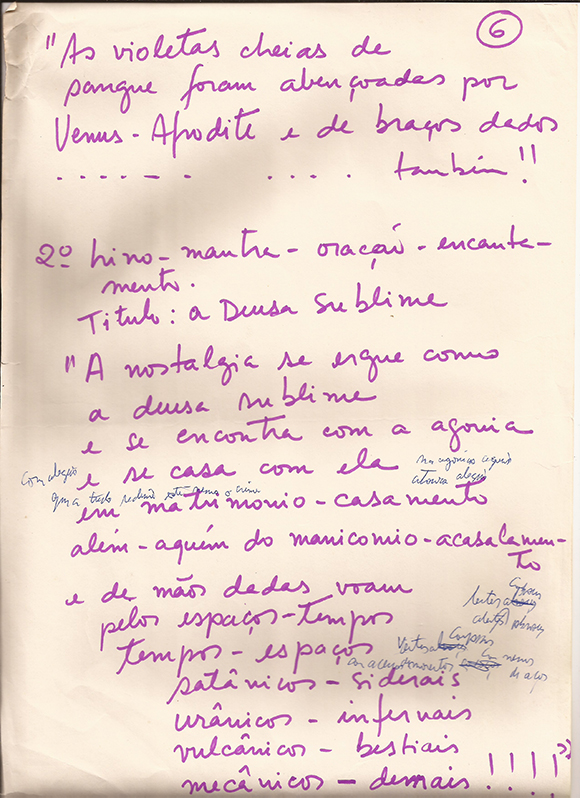 6
"As violetas cheias de
sangue foram abençoadas por
Venus - Afrodite e de braços dados
. . . . - - . . . . . também!!
2º hino - mantra - oração - encanta-
mento.
Titulo: a Deusa Sublime
"A nostalgia se ergue como
a deusa sublime
e se encontra com a agonia
e se casa com ela
em matrimonio - casamento
além - aquém do manicomio - acasalamen-
to
e de mãos dadas voam
pelos espaços - tempos
tempos - espaços
satânicos - siderais
urânicos - infernais
vulcânicos - bestiais
mecânicos - demais!!!!"